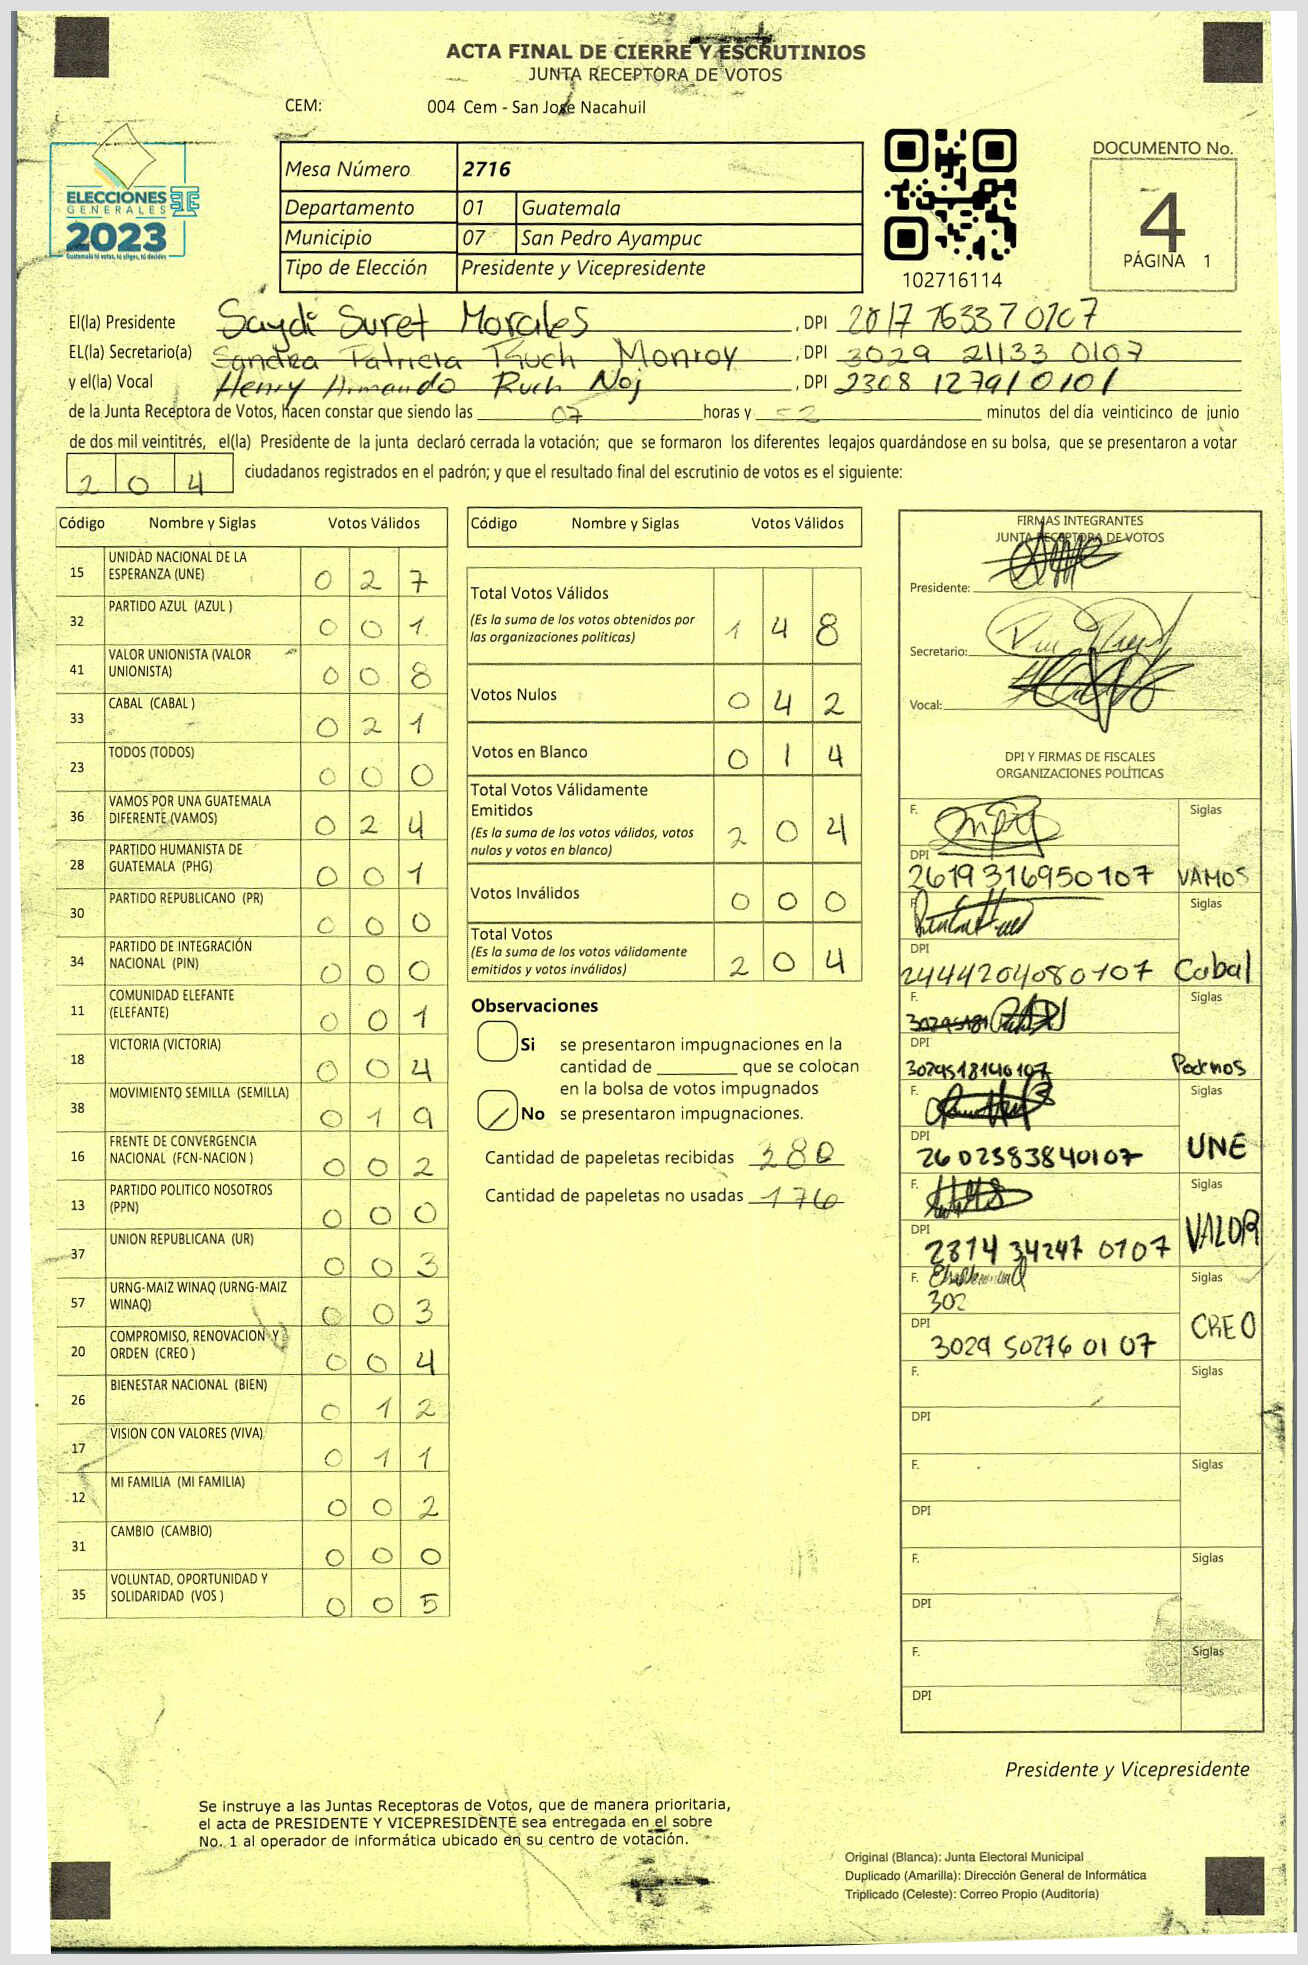 ACTA FINAL DE CIERRE Y ESCRUTINIOS
JUNTA RECEPTORA DE VOTOS
CEM: 004 Cem - San Jose Nacahuil
ELECCIONES
GENERALES
2023
Guatemala tú votas, tú eliges, tú decides
Mesa Número 2716
Departamento 01 Guatemala
Municipio 07 San Pedro Ayampuc
Tipo de Elección Presidente y Vicepresidente
102716114
DOCUMENTO No.
4
PÁGINA 1
El(la) Presidente Saydi Suret Morales , DPI 2817 76337 0107
EL(la) Secretario(a) Sandra Patricia Tzuch Monroy , DPI 3029 21133 0107
y el(la) Vocal Henry Armando Ruch Noj , DPI 2308 12791 0101
de la Junta Receptora de Votos, hacen constar que siendo las 07 horas y 52 minutos del día veinticinco de junio
de dos mil veintitrés, el(la) Presidente de la junta declaró cerrada la votación; que se formaron los diferentes legajos quardándose en su bolsa, que se presentaron a votar
204 ciudadanos registrados en el padrón; y que el resultado final del escrutinio de votos es el siguiente:
Código Nombre y Siglas Votos Válidos
15 UNIDAD NACIONAL DE LA
ESPERANZA (UNE) 027
32 PARTIDO AZUL (AZUL ) 001
41 VALOR UNIONISTA (VALOR
UNIONISTA) 008
33 CABAL (CABAL ) 021
23 TODOS (TODOS) 000
36 VAMOS POR UNA GUATEMALA
DIFERENTE (VAMOS) 024
28 PARTIDO HUMANISTA DE
GUATEMALA (PHG) 001
30 PARTIDO REPUBLICANO (PR) 000
34 PARTIDO DE INTEGRACIÓN
NACIONAL (PIN) 000
11 COMUNIDAD ELEFANTE
(ELEFANTE) 001
18 VICTORIA (VICTORIA) 004
38 MOVIMIENTO SEMILLA (SEMILLA) 019
16 FRENTE DE CONVERGENCIA
NACIONAL (FCN-NACION ) 002
13 PARTIDO POLITICO NOSOTROS
(PPN) 000
37 UNION REPUBLICANA (UR) 003
57 URNG-MAIZ WINAQ (URNG-MAIZ
WINAQ) 003
20 COMPROMISO, RENOVACION Y
ORDEN (CREO ) 004
26 BIENESTAR NACIONAL (BIEN) 012
17 VISION CON VALORES (VIVA) 011
12 MI FAMILIA (MI FAMILIA) 002
31 CAMBIO (CAMBIO) 000
35 VOLUNTAD, OPORTUNIDAD Y
SOLIDARIDAD (VOS ) 005
Código Nombre y Siglas Votos Válidos
Total Votos Válidos
(Es la suma de los votos obtenidos por
las organizaciones políticas) 148
Votos Nulos 042
Votos en Blanco 014
Total Votos Válidamente
Emitidos
(Es la suma de los votos válidos, votos
nulos y votos en blanco) 204
Votos Inválidos 000
Total Votos
(Es la suma de los votos válidamente
emitidos y votos inválidos) 204
Observaciones
Si se presentaron impugnaciones en la
cantidad de ________ que se colocan
en la bolsa de votos impugnados
No se presentaron impugnaciones.
Cantidad de papeletas recibidas 380
Cantidad de papeletas no usadas 176
FIRMAS INTEGRANTES
JUNTA RECEPTORA DE VOTOS
Presidente:
Secretario:
Vocal:
DPI Y FIRMAS DE FISCALES
ORGANIZACIONES POLÍTICAS
F. Siglas
DPI
2619 316950107 VAMOS
F. Siglas
DPI
2444204080107 Cabal
F. Siglas
DPI
3029518140107 Podemos
F. Siglas
DPI
2602583840107 UNE
F. Siglas
DPI
2874 34247 0107 VALOR
F. Siglas
302
DPI
3029 50276 0107 CREO
F. Siglas
DPI
F. Siglas
DPI
F. Siglas
DPI
F. Siglas
DPI
Presidente y Vicepresidente
Se instruye a las Juntas Receptoras de Votos, que de manera prioritaria,
el acta de PRESIDENTE Y VICEPRESIDENTE sea entregada en el sobre
No. 1 al operador de informática ubicado en su centro de votación.
Original (Blanca): Junta Electoral Municipal
Duplicado (Amarilla): Dirección General de Informática
Triplicado (Celeste): Correo Propio (Auditoría)